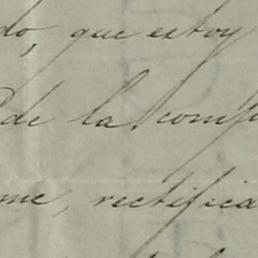 do, que estoy
de la comp
me, rectifica